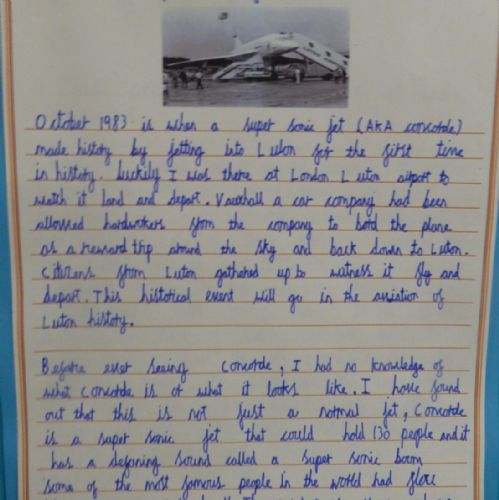 October 1983 is when a super sonic jet (AKA concorde)
made history by jetting into Luton for the first time
in history. Luckily I was there at London Luton airport to
watch it land and depart. Vauxhall a car company had been
allowed hardworkers from the company to bord the plane
as a reward trip around the sky and back down to Luton.
Citizens from Luton gathered up to witness it fly and
depart. This historical event will go in the aviation of
Luton history.
Before ever seeing Concorde, I had no knowledge of
what Concorde is or what it looks like. I have found
out that this is not just a normal jet, Concorde
is a super sonic jet that could hold 130 people and it
has a defining sound called a super sonic boom
some of the most famous people in the world had flew